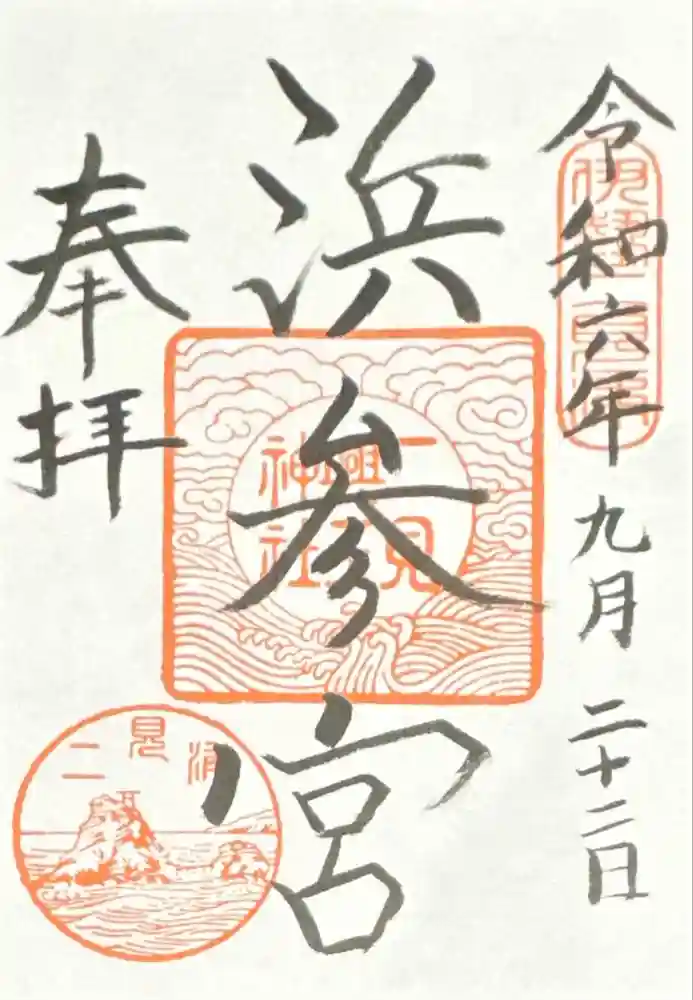 令和六年九月二十二日
伊勢二見浦
浜参宮
二見
興玉
神社
奉拝
二見浦